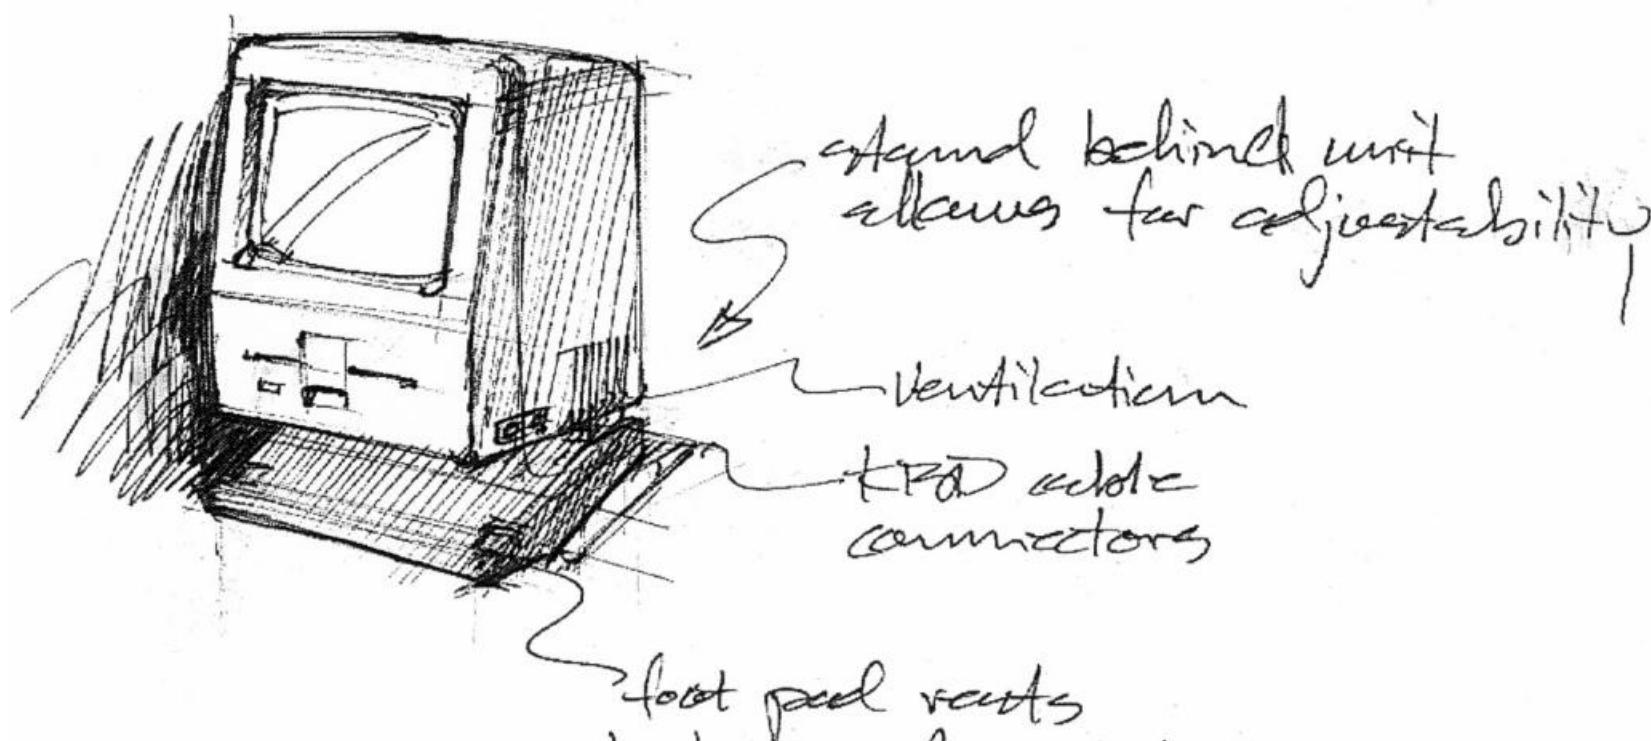 stand behind unit
allows for adjustability
ventilation
KBD cable
connectors
foot pad rests